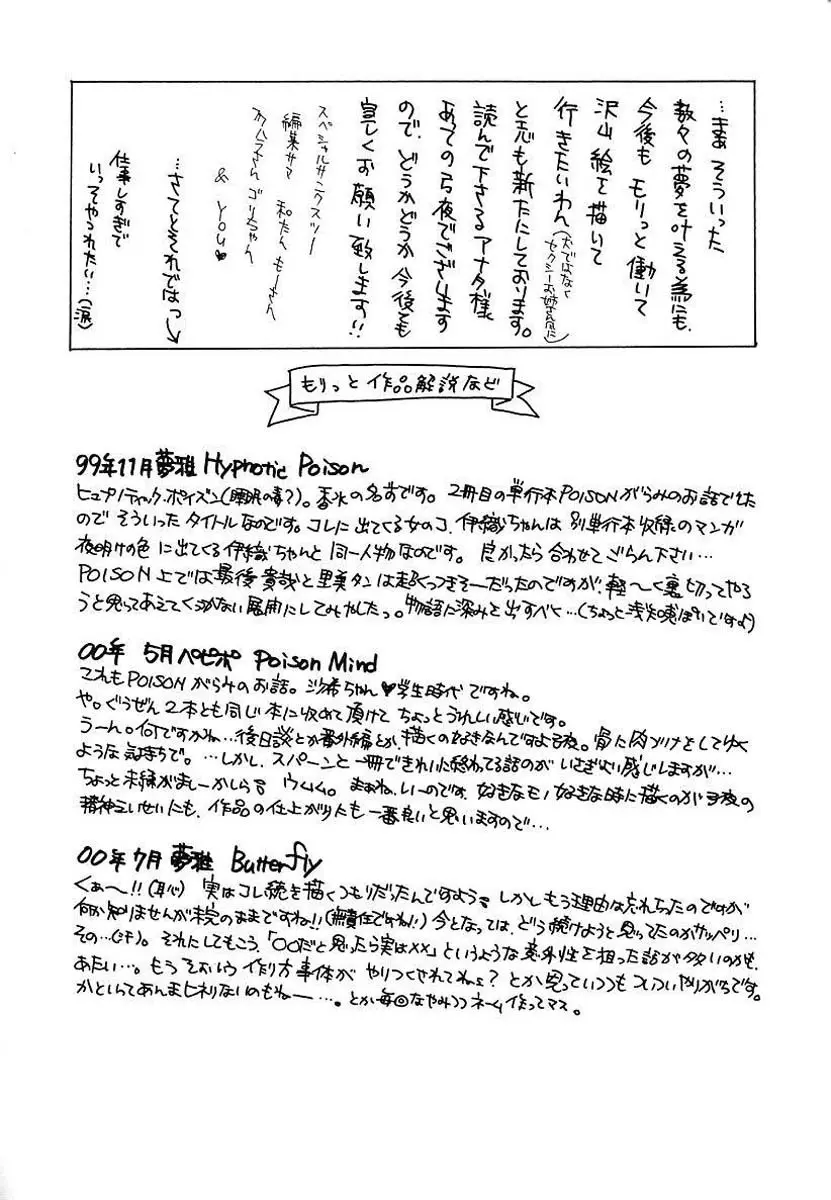 …まあ そういった
数々の夢を叶える為にも、
今後も モリっと働いて
沢山 絵を描いて
行きたいわん(犬ではなくセクシーお姉さん風に)
と志も新たにしております。
読んで下さるアナタ様
あっての弓夜でございます
ので、どうかどうか今後とも
宜しくお願い致します!!
スペシャルサンクスツー
編集サマ 和たん もーさん
さん ゴリちゃん
& YOU♥
…さてとそれではっ↓
仕事しすぎで
いっそやつれたい…(涙)
もりっと 作品解説など
99年11月夢雅 Hypnotic Poison
ヒュプノティック・ポイズン(睡眠の毒?)。香水の名前です。2冊目の単行本POISONがらみのお話でした
ので そういった タイトルなのです。コレに出てくる女のコ、伊織ちゃんは 別単行本収録のマンガ
夜明けの色 に出てくる伊織ちゃんと 同一人物なのです。良かったら 合わせてごらん下さい…
POISON上では最後 貴哉と里美タンは超くっつきそーだったのですが、軽〜く裏切ってやろ
うと思ってあえてくっつかない展開にしてみやしたっ。物語に深みを出すべく…(ちょっと浅知恵ぽいですよ)
00年 5月ペピポ Poison Mind
これもPOISONがらみのお話。沙希ちゃん♥学生時代ですね。
や。ぐうぜん2本とも同じ本に収めて頂けて ちょっとうれしい感じです。
うーん。何ですかね…後日談とか番外編とか、描くの好きなんですよ 夜。骨に肉づけをしてゆく
ような 気持ちで。…しかし、スパーンと一冊できれいに終わってる話のが いさぎよい感じしますが…
ちょっと未練がましーかしら? ウムム。まぁね、いーのです、好きなモノ好きな時に描くのが 夜の
精神えいせいにも、作品の仕上がりにも 一番良いと思いますので…
00年7月 夢雅 Butterfly
くぁ〜!!(恥) 実はコレ続き描くつもりだったんですよう。しかしもう理由は忘れちったのですが
何か知りませんが未完のままですね!!(無責任ですね!)今となっては、どう続けようと思ってたのかサッパリ…
その…(汗)。それにしてもこう、「〇〇だと思ったら実は××」というような意外性を狙った話が多いのかも、
あたい…。もう そおいう 作り方事体が やりつくされてねえ? とか思っていつつも ついついやりがちです。
かといってあんまヒネリないのもねー…。とか毎回なやみつつ ネーム作ってマス。